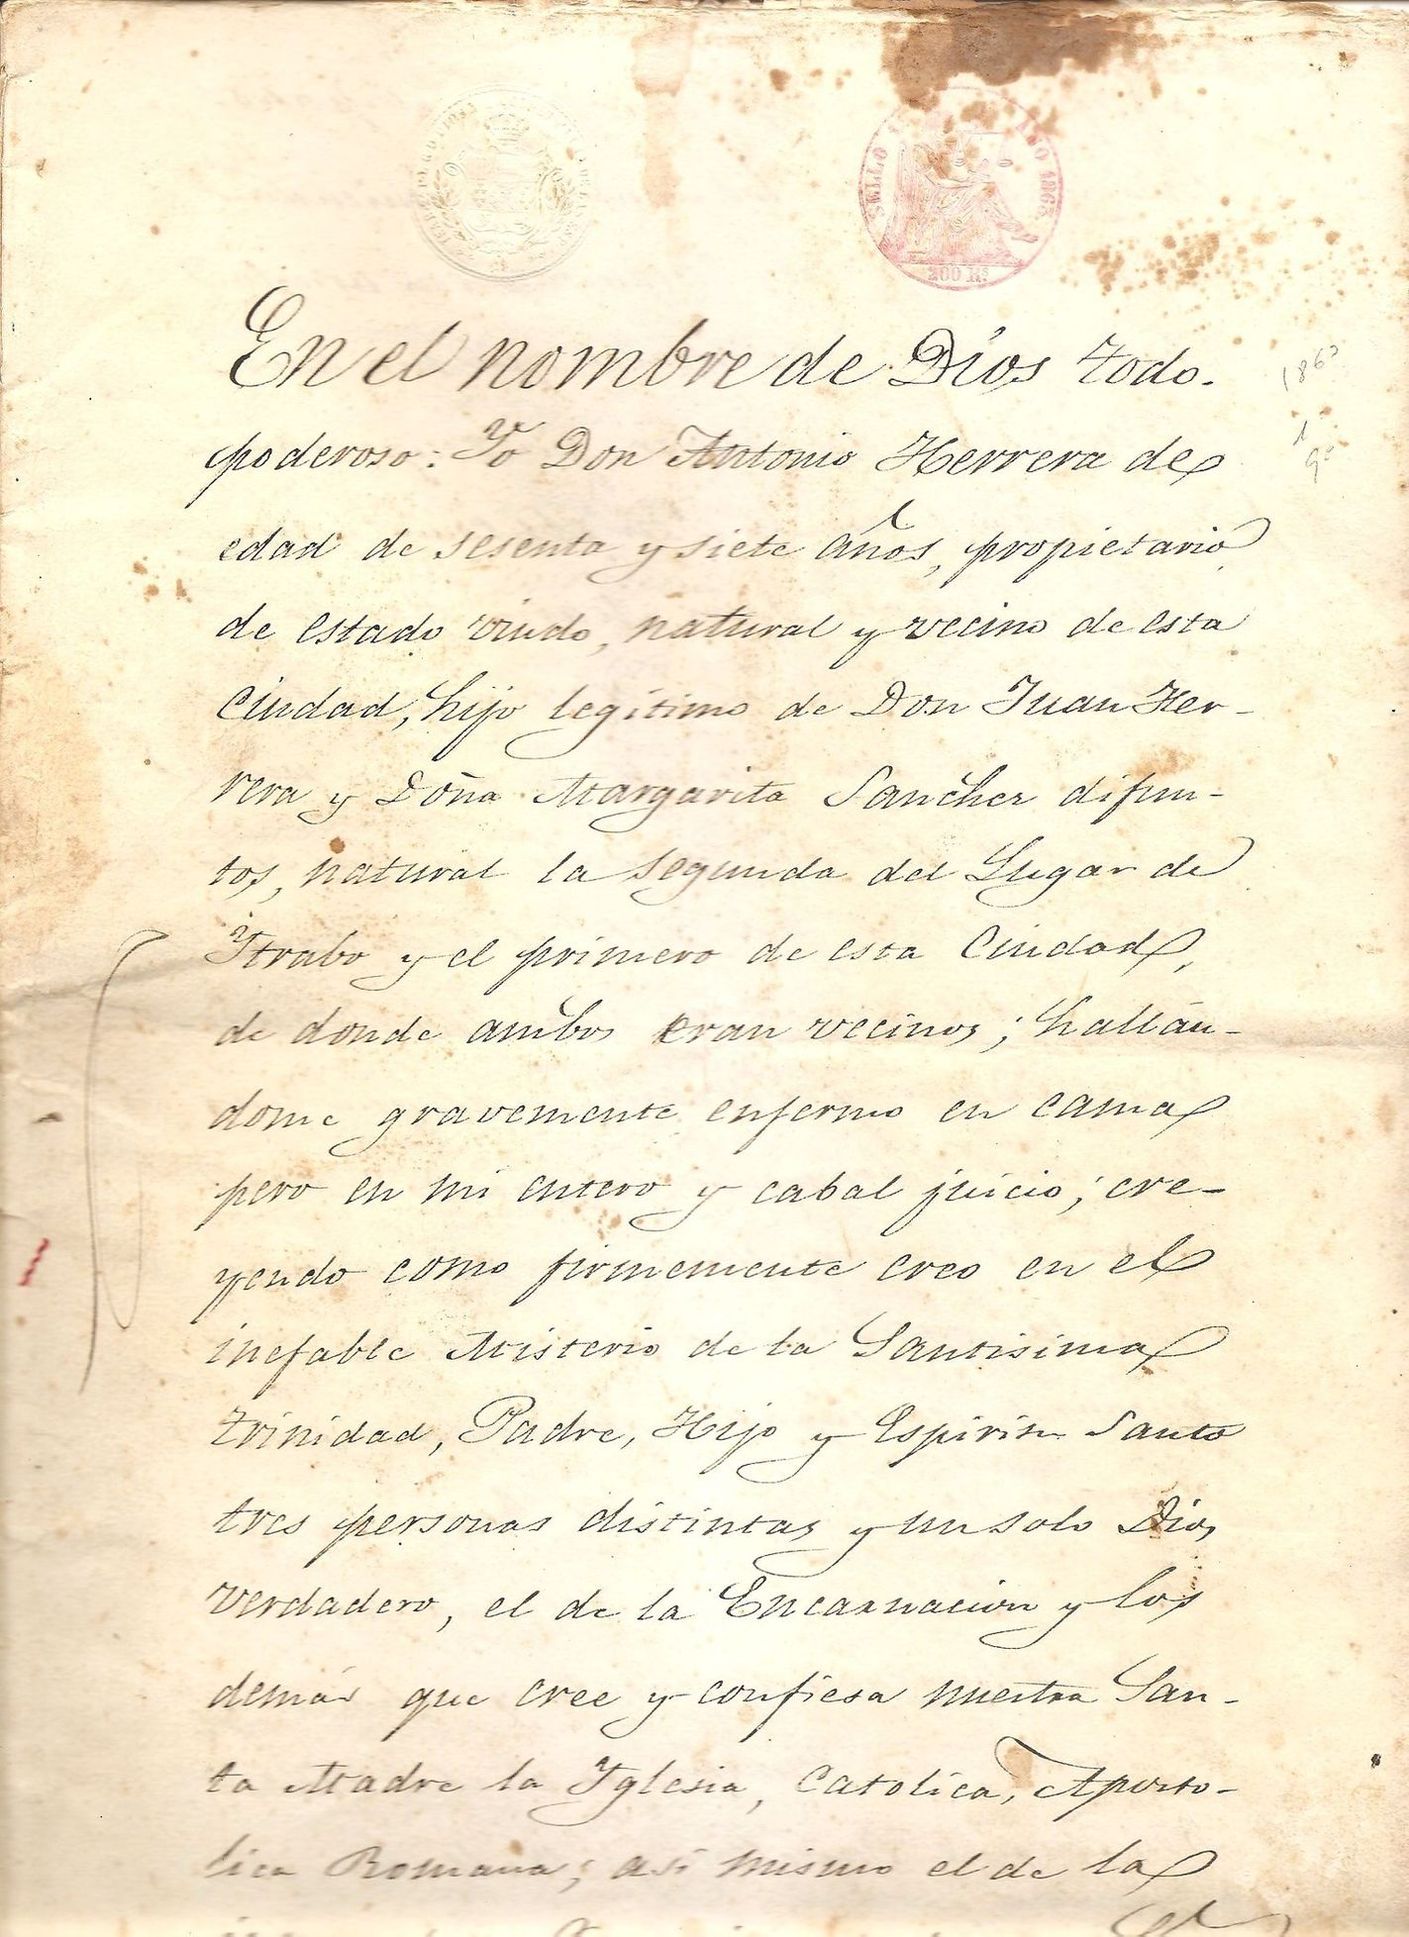 SELLO
AÑO 1863
200 Rs
En el nombre de Dios todo-
poderoso: Yo Don Antonio Herrera de
edad de sesenta y siete años, propietario,
de estado viudo, natural y vecino de esta
Ciudad, hijo legítimo de Don Juan Her-
rera y Doña Margarita Sanchez difun-
tos, natural la segunda del Lugar de
Ytrabo y el primero de esta Ciudad,
de donde ambos eran vecinos; hallán-
dome gravemente enfermo en cama
pero en mi entero y cabal juicio; cre-
yendo como firmemente creo en el
inefable Misterio de la Santisima
trinidad, Padre, Hijo y Espiritu Santo
tres personas distintas y un solo Dios
verdadero, el de la Encarnacion y los
demás que cree y confiesa nuestra San-
ta Madre la Yglesia, Catolica, Aposto-
lica Romana; así mismo el de la